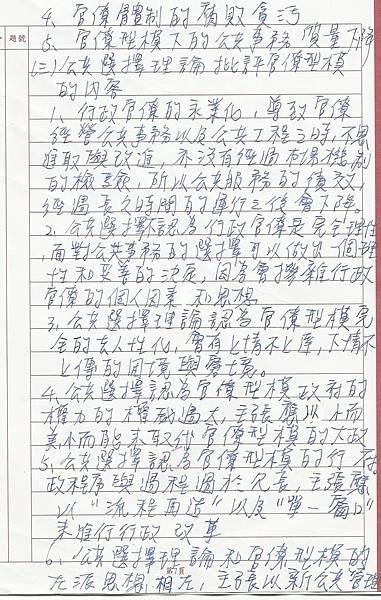 4、官僚體制的腐敗貪污
題號
5、官僚型模下的公共事務質量下降
(三)公共選擇理論批評官僚型模
的內容
1、行政官僚的永業化，導致官僚
經營公共事務以及公共工程之時，不思
進取與改進，亦沒有經過市場機制
的檢驗，所以公共服務的績效，
經過長久時間的運行之後會下降。
2、公共選擇不認為行政官僚是完全理性
，面對公共事務的選擇可以做出一個理
性和妥善的決定，因為會摻雜行政
官僚的個人因素和思想
3、公共選擇理論認為官僚型模完
全的去人性化，會有上情不下達，下情不
上傳的困境與窘境。
4、公共選擇認為官僚型模政府的
權力的權破過大，主張應以小而
美小而能來取代官僚型模的大政府
5、公共選擇認為官僚型模的行
政程序與過程過於冗長，主張應
以“流程再造”以及“單一窗口”
來進行行政改革
6、公共選擇理論和官僚型模的
左派思想相左，主張以新公共管理
第7頁